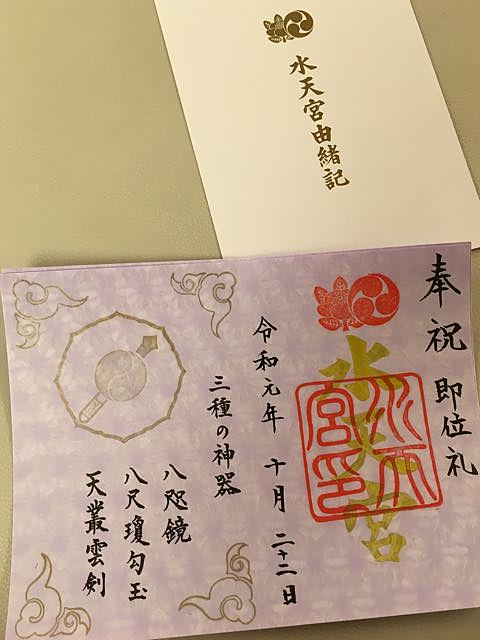 水天宮由緒記
奉祝 即位礼
水天宮
水天宮印
令和元年 十月 二十二日
三種の神器
八咫鏡
八尺瓊勾玉
天叢雲剣